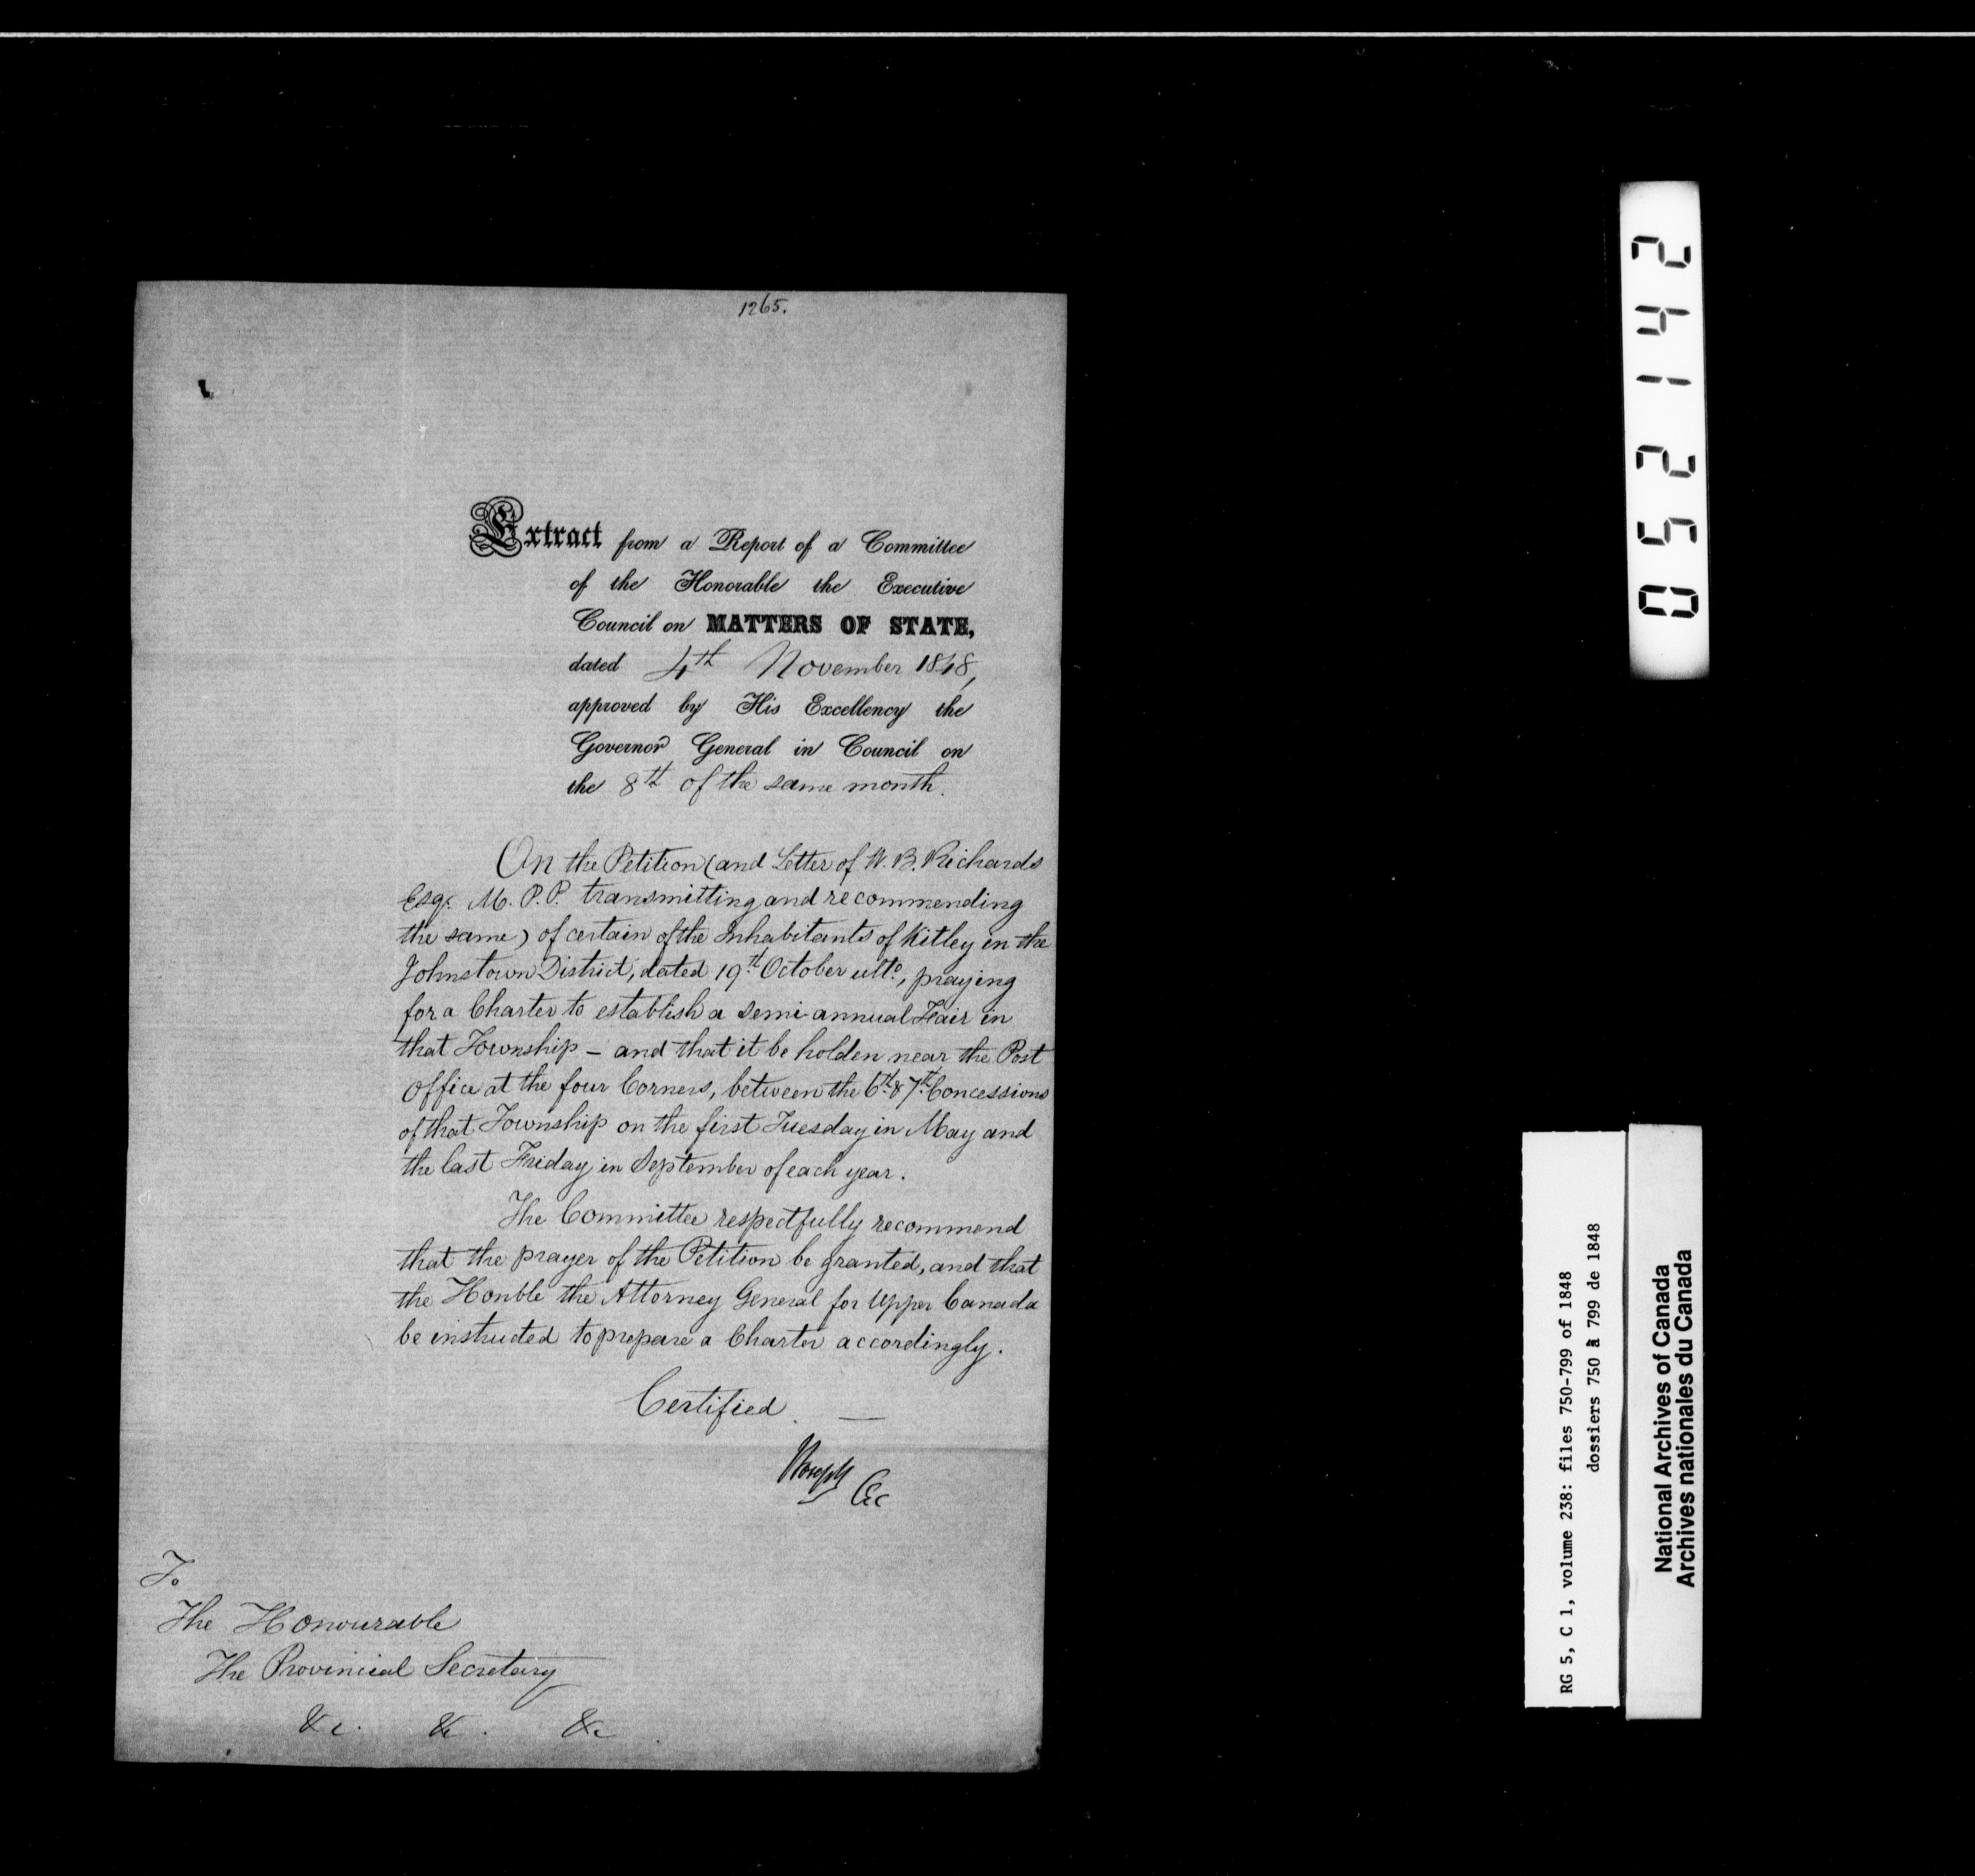 1265.
Extract from a Report of a Committee
of the Honorable the Executive
Council on MATTERS OF STATE,
dated 4th November 1848,
approved by His Excellency the
Governor General in Council on
the 8th of the same month.
On the Petition (and Letter of W. B. Richards
Esqr. M. P. P. transmitting and recommending
the same) of certain of the Inhabitants of Kitley in the
Johnstown District, dated 19th October ulto, praying
for a Charter to establish a semi-annual Fair in
that Township – and that it be holden near the Post
Office at the four Corners, between the 6th & 7th Concessions
of that Township on the first Tuesday in May and
the last Friday in September of each year.
The Committee respectfully recommend
that the prayer of the Petition be granted, and that
the Honble the Attorney General for Upper Canada
be instructed to prepare a Charter accordingly.
Certified. —
To
The Honourable
The Provincial Secretary
&c. &c. &c.
052142
RG 5, C 1, volume 238: files 750-799 of 1848
dossiers 750 à 799 de 1848
National Archives of Canada
Archives nationales du Canada